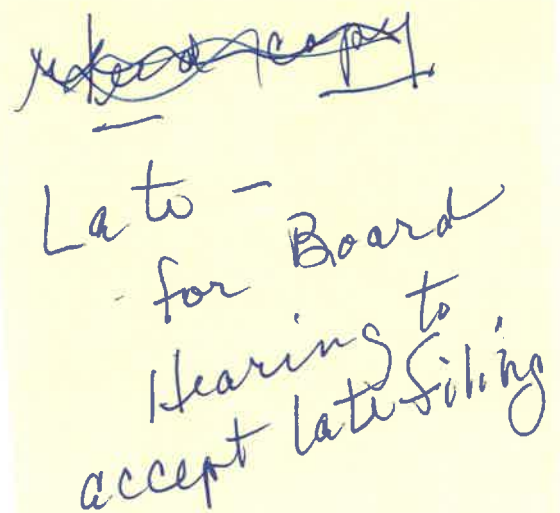 copy
Late -
for Board
Hearing to
accept late filing